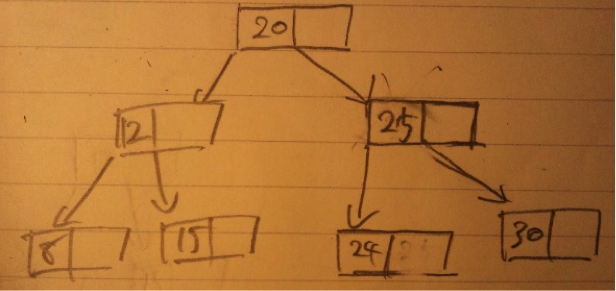 20
12 25
8 15 24 30